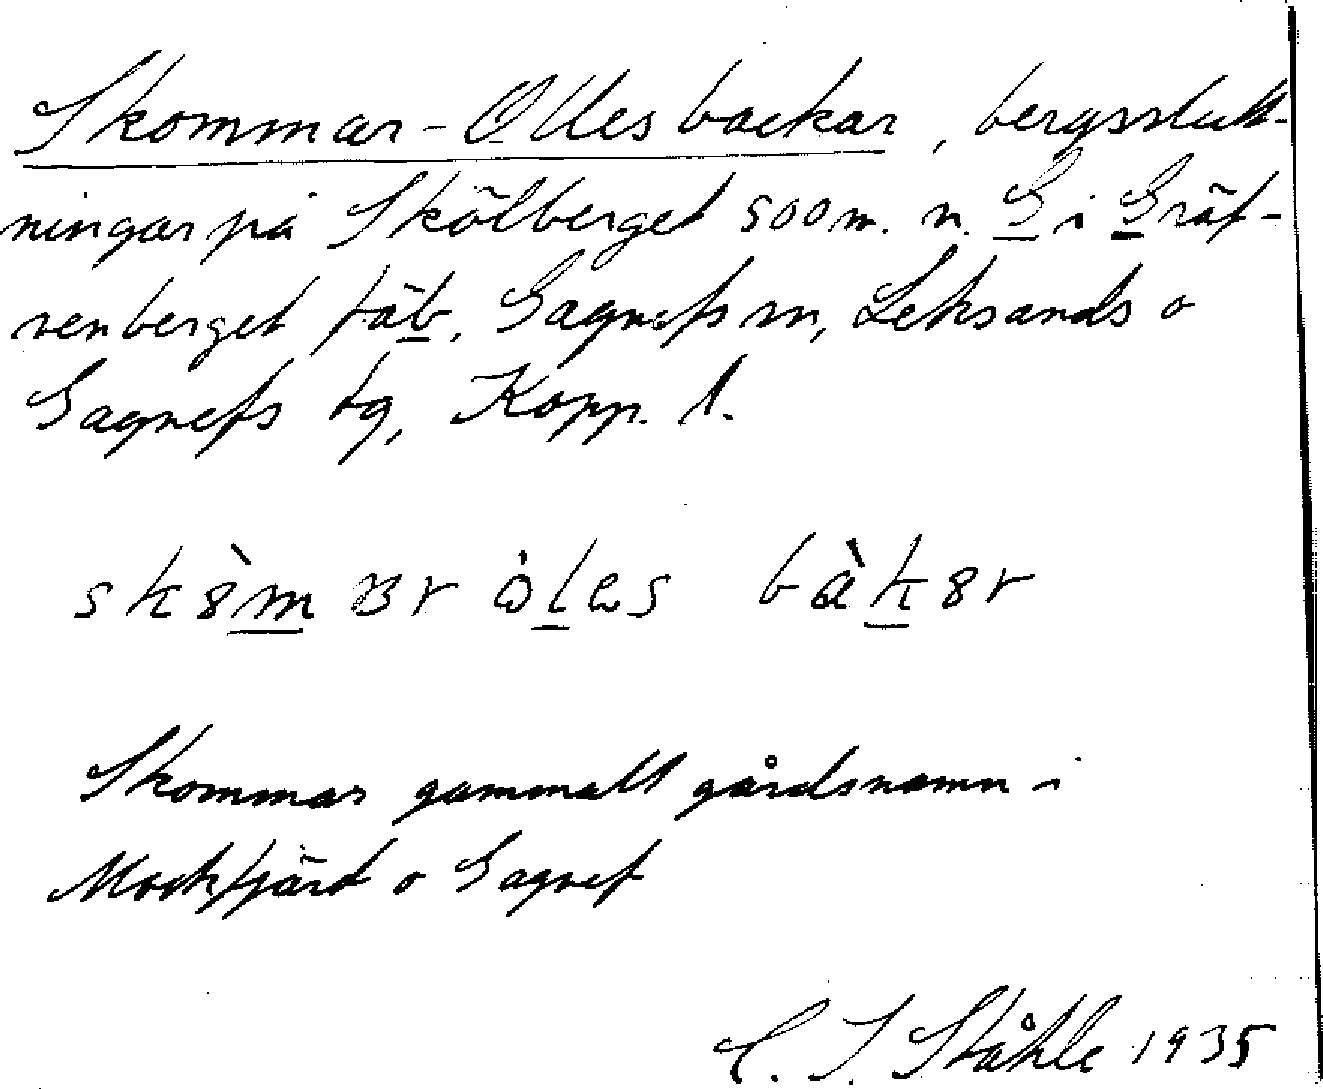 Skommar-Olles backar, bergslutt-
ningar på Skölberget 500 m. n. G i Gräf-
venberget fäb. Gagnefs sn, Leksands o
Gagnefs tg, Kopp. l.
Skommar gammalt gårdsnamn i
Mockfjärd o Gagnef
C. I. Ståhle 1935